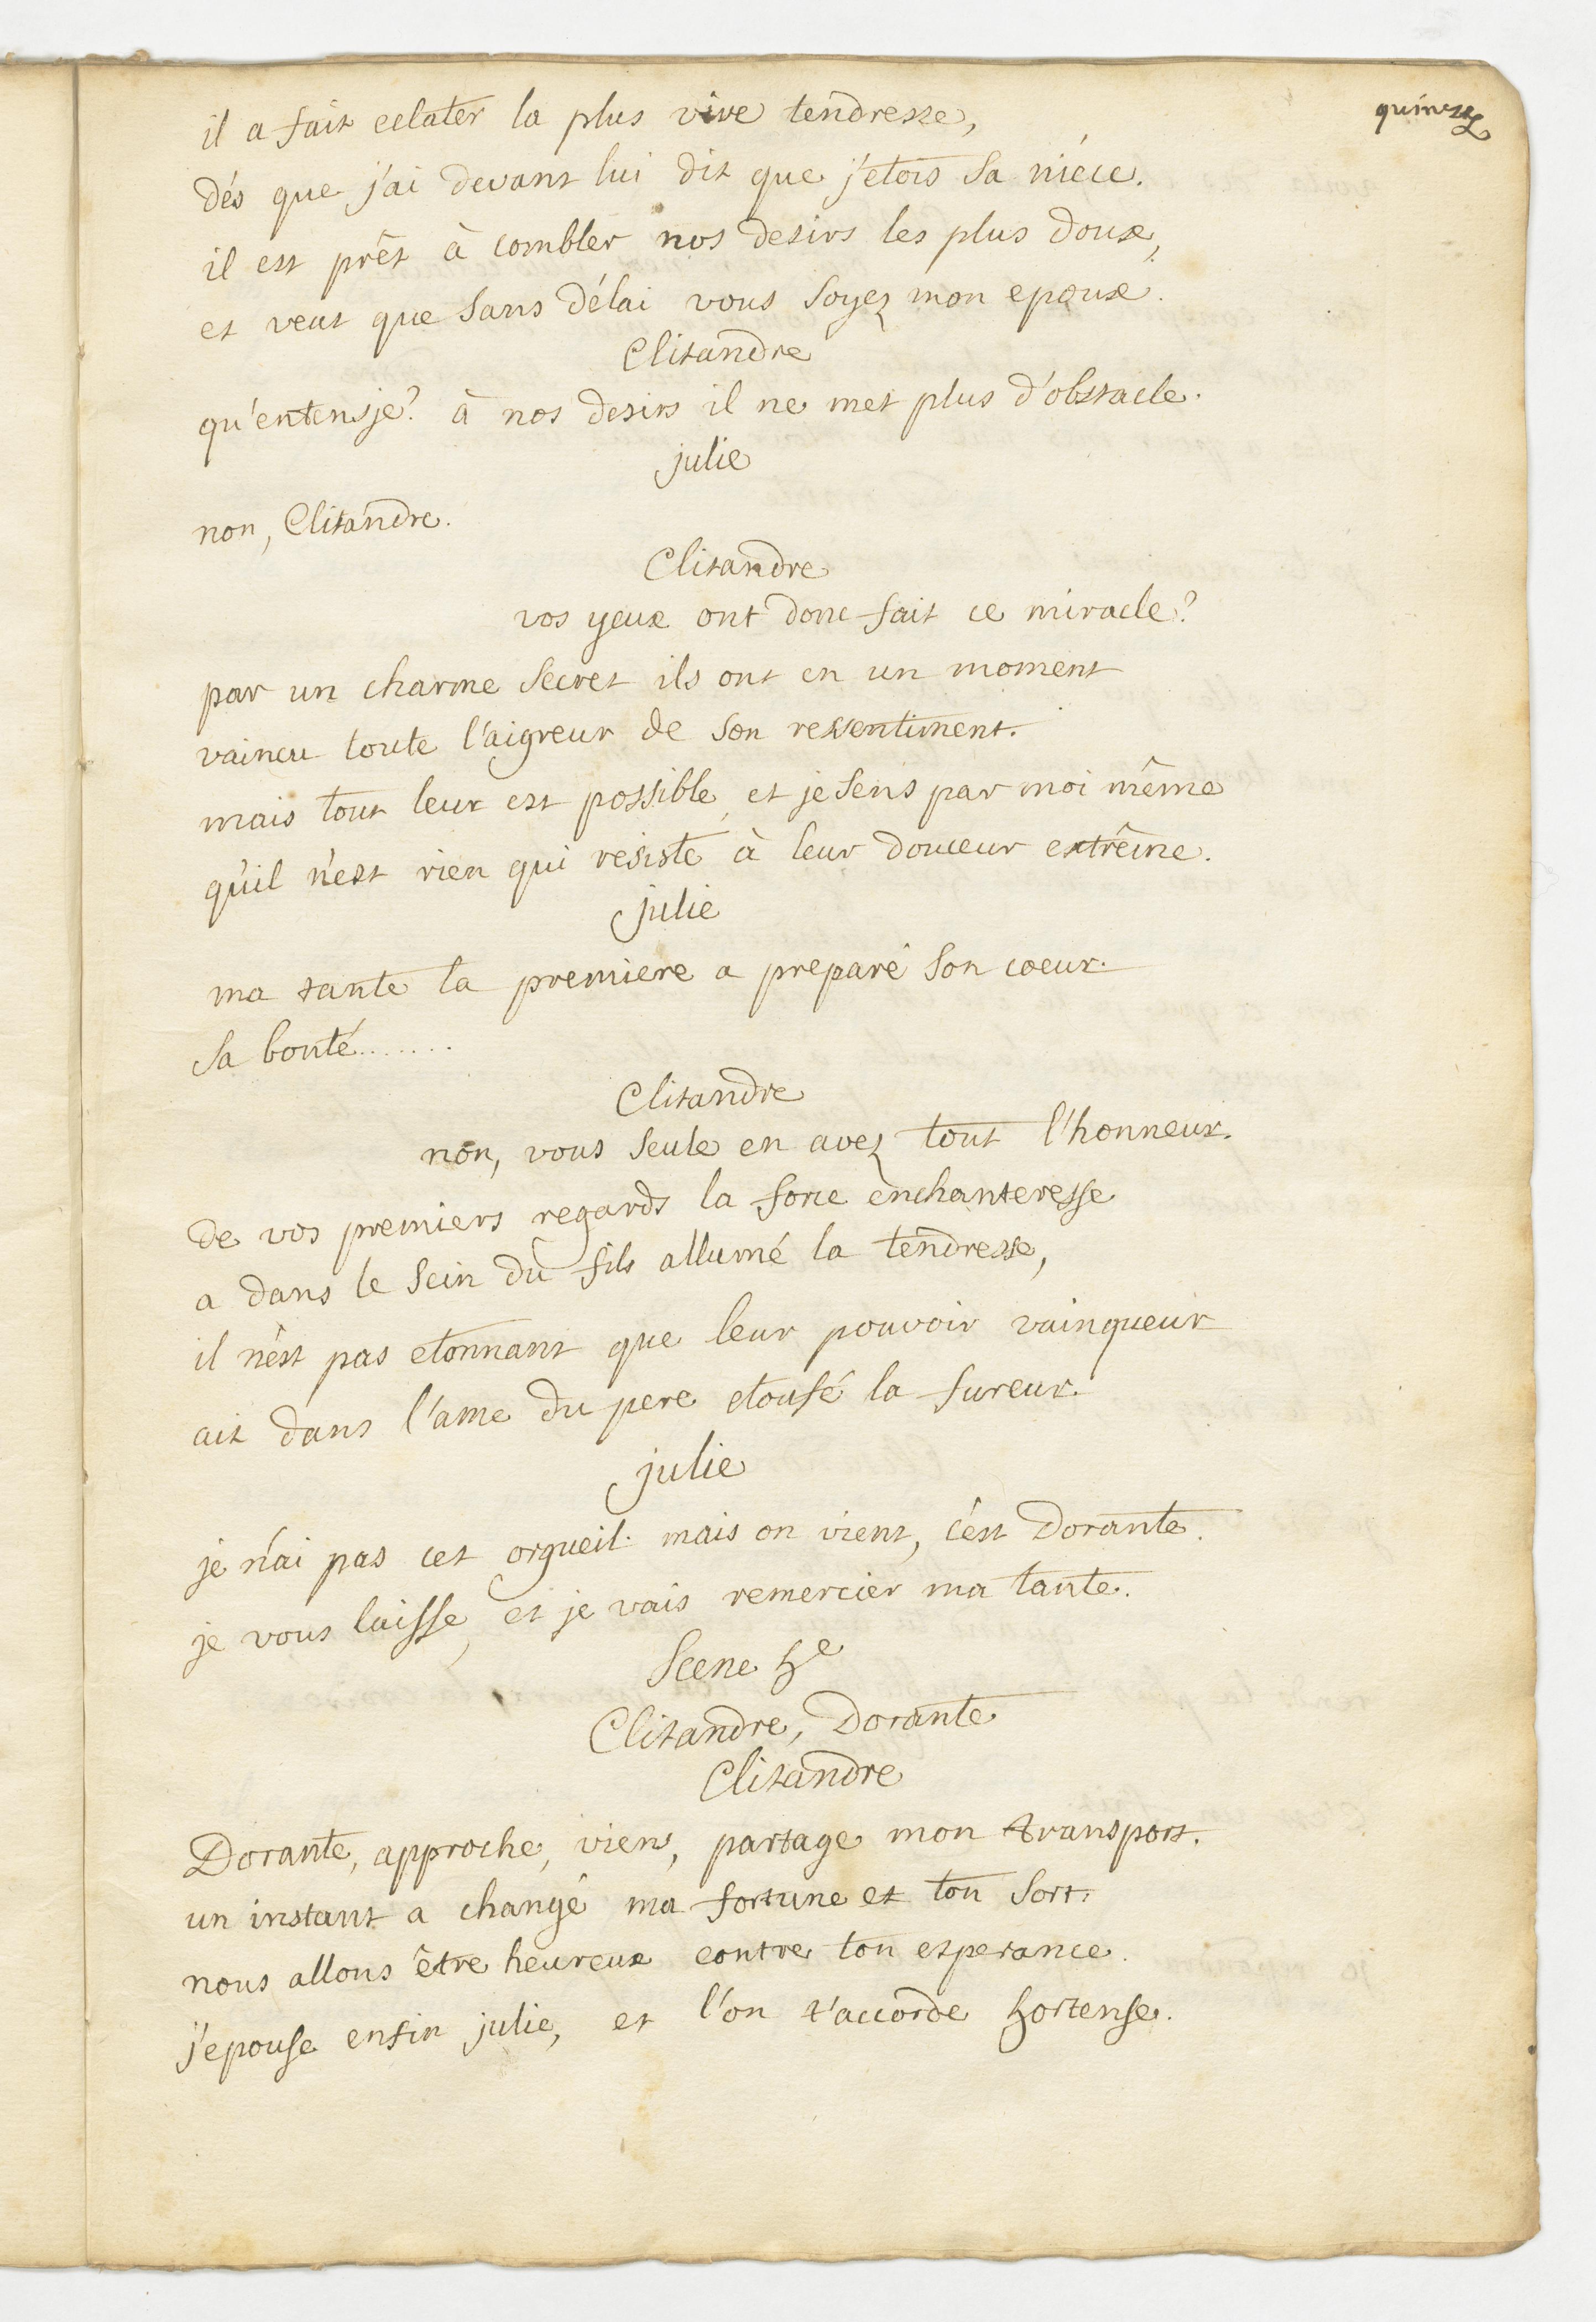 quinze
il a fait eclater la plus vive tendresse,
dés que j'ai devant lui dit que j'etois sa niéce.
il est prêt à combler nos desirs les plus doux,
et veut que sans délai vous soyez mon epoux.
Clitandre
qu'entens je? à nos desirs il ne met plus d'obstacle.
julie
non, Clitandre.
Clitandre
vos yeux ont donc fait ce miracle?
par un charme secret ils ont en un moment
vaincu toute l'aigreur de son ressentiment.
mais tout leur est possible, et je sens par moi même
qu'il n'est rien qui resiste à leur douceur extrême.
julie
ma tante la premiere a preparé son coeur.
sa bonté.......
Clitandre
non, vous seule en avez tout l'honneur.
de vos premiers regards la force enchanteresse
a dans le sein du fils allumé la tendresse,
il n'est pas etonnant que leur pouvoir vainqueur
ait dans l'ame du pere etoufé la fureur.
julie
je n'ai pas cet orgueil. mais on vient, c'est Dorante.
je vous laisse, et je vais remercier ma tante.
Scene 5e
Clitandre, Dorante
Clitandre
Dorante, approche, viens, partage mon transport.
un instant a changé ma fortune et ton sort.
nous allons être heureux contre ton esperance.
j'epouse enfin julie, et l'on t'accorde hortense.